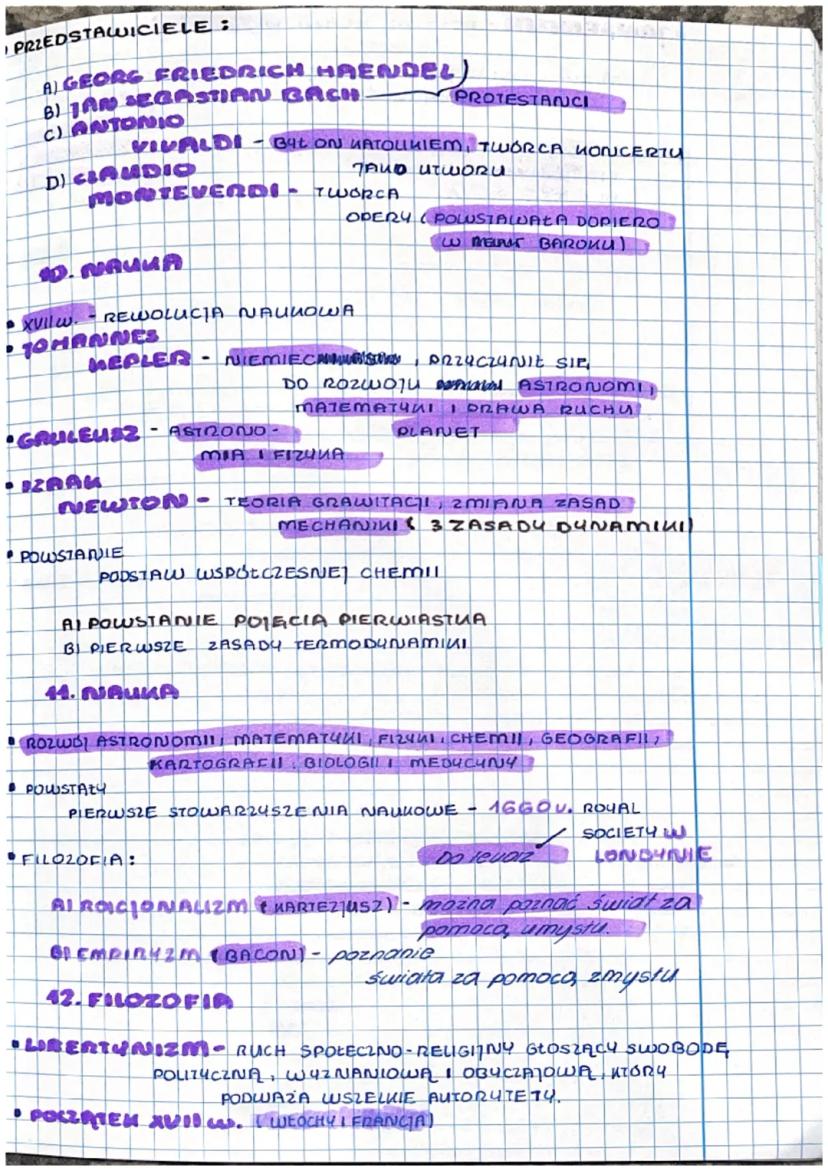 PRZEDSTAWICIELE:
A) GEORG FRIEDRICH HAENDEL
B) JAN SEBASTIAN BACH PROTESTANCI
C) ANTONIO
VIVALDI - BYŁ ON KATOLIKIEM, TWÓRCA KONCERTU
JAKO UTWORU
D) CLAUDIO
MONTEVERDI - TWÓRCA
OPERY (POWSTAWAŁA DOPIERO
W BAROKU)
10. NAUKA
• XVII w. - REWOLUCJA NAUKOWA
• JOHANNES
KEPLER - NIEMIEC, PRZYCZYNIŁ SIĘ
DO ROZWOJU ASTRONOMII,
MATEMATYKI I PRAWA RUCHU
PLANET
• GALILEUSZ - ASTRONO-
MIA I FIZYKA
• IZAAK
NEWTON - TEORIA GRAWITACJI, ZMIANA ZASAD
MECHANIKI (3 ZASADY DYNAMIKI)
• POWSTANIE
PODSTAW WSPÓŁCZESNEJ CHEMII
A) POWSTANIE POJĘCIA PIERWIASTKA
B) PIERWSZE ZASADY TERMODYNAMIKI
11. NAUKA
• ROZWÓJ ASTRONOMII, MATEMATYKI, FIZYKI, CHEMII, GEOGRAFII,
KARTOGRAFII, BIOLOGII I MEDYCYNY
• POWSTAŁY
PIERWSZE STOWARZYSZENIA NAUKOWE - 1660 r. ROYAL
SOCIETY W
LONDYNIE
• FILOZOFIA:
A) RACJONALIZM (KARTEZJUSZ) - można poznać świat za
pomocą umysłu.
B) EMPIRYZM (BACON) - poznanie
świata za pomocą zmysłu
12. FILOZOFIA
• LIBERTYNIZM - RUCH SPOŁECZNO-RELIGIJNY GŁOSZĄCY SWOBODĘ
POLITYCZNĄ, WYZNANIOWĄ I OBYCZAJOWĄ, KTÓRY
PODWAŻA WSZELKIE AUTORYTETY.
• POCZĄTEK XVII w. (WŁOCHY I FRANCJA)